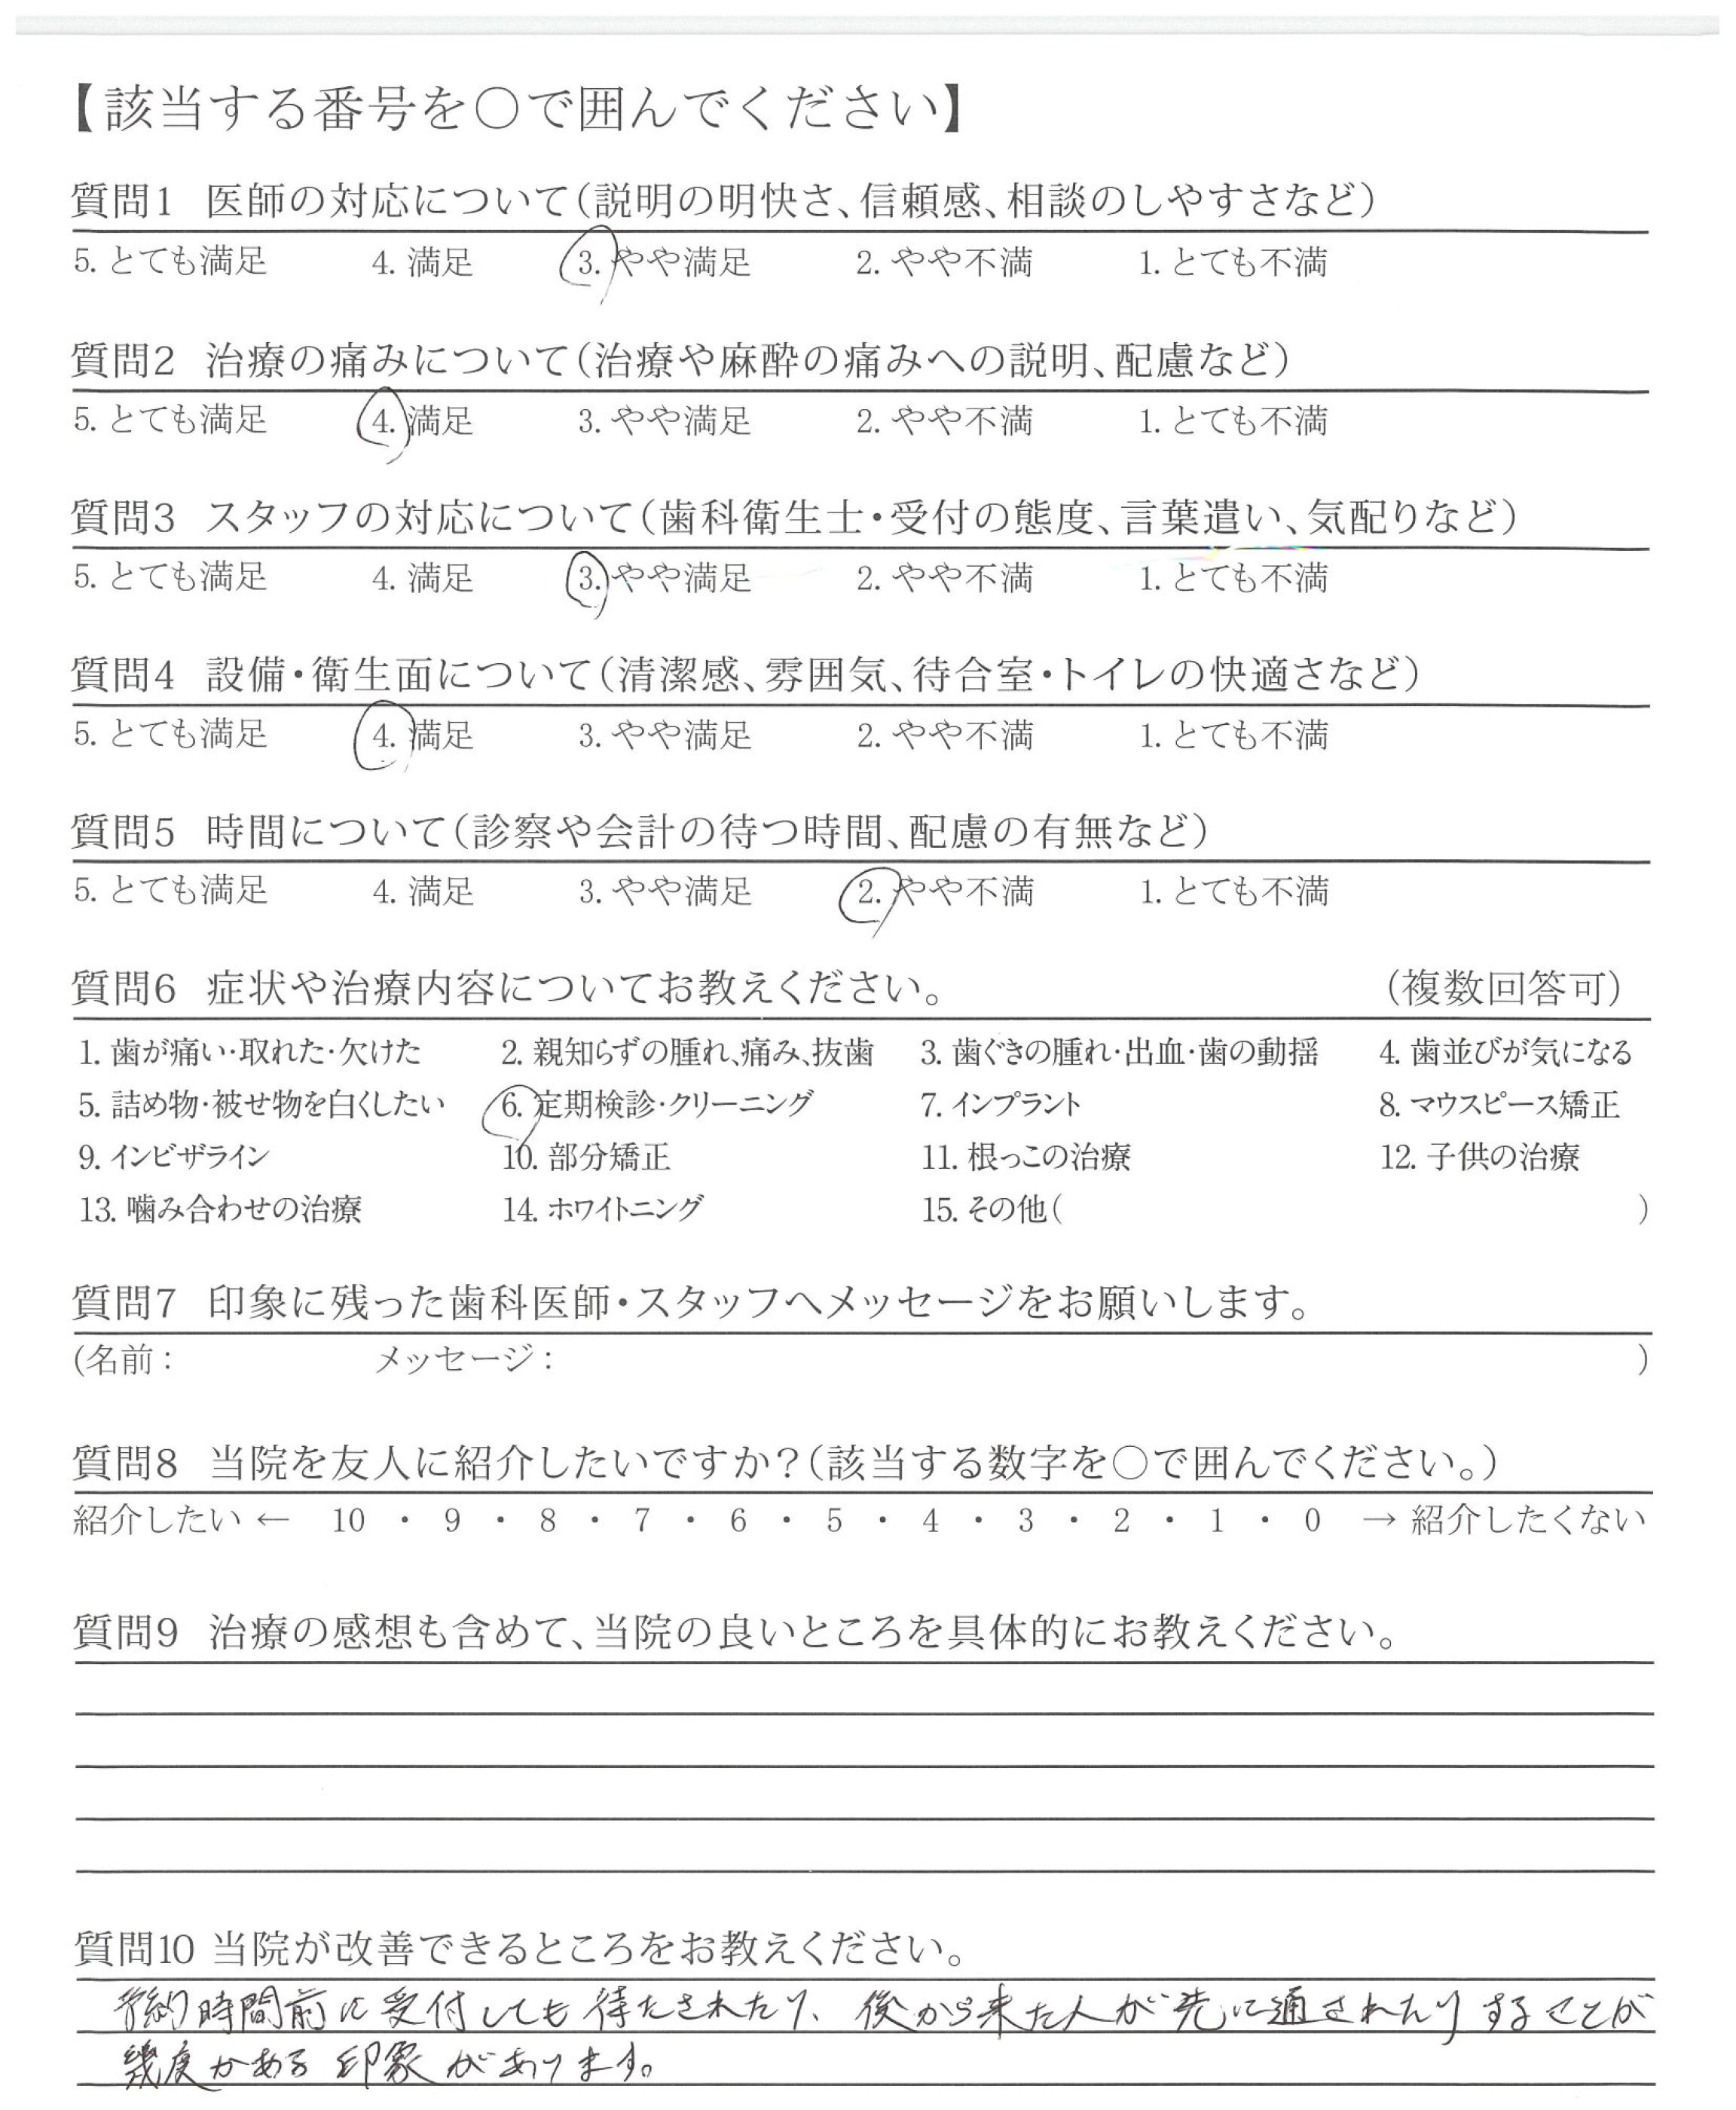 【該当する番号を○で囲んでください】
質問1 医師の対応について(説明の明快さ、信頼感、相談のしやすさなど)
5. とても満足 4. 満足 3. やや満足 2. やや不満 1. とても不満
質問2 治療の痛みについて(治療や麻酔の痛みへの説明、配慮など)
5. とても満足 4. 満足 3. やや満足 2. やや不満 1. とても不満
質問3 スタッフの対応について(歯科衛生士・受付の態度、言葉遣い、気配りなど)
5. とても満足 4. 満足 3. やや満足 2. やや不満 1. とても不満
質問4 設備・衛生面について(清潔感、雰囲気、待合室・トイレの快適さなど)
5. とても満足 4. 満足 3. やや満足 2. やや不満 1. とても不満
質問5 時間について(診察や会計の待つ時間、配慮の有無など)
5. とても満足 4. 満足 3. やや満足 2. やや不満 1. とても不満
質問6 症状や治療内容についてお教えください。 (複数回答可)
1. 歯が痛い・取れた・欠けた 2. 親知らずの腫れ、痛み、抜歯 3. 歯ぐきの腫れ・出血・歯の動揺 4. 歯並びが気になる
5. 詰め物・被せ物を白くしたい 6. 定期検診・クリーニング 7. インプラント 8. マウスピース矯正
9. インビザライン 10. 部分矯正 11. 根っこの治療 12. 子供の治療
13. 噛み合わせの治療 14. ホワイトニング 15. その他( )
質問7 印象に残った歯科医師・スタッフへメッセージをお願いします。
(名前: メッセージ: )
質問8 当院を友人に紹介したいですか?(該当する数字を○で囲んでください。)
紹介したい ← 10 ・ 9 ・ 8 ・ 7 ・ 6 ・ 5 ・ 4 ・ 3 ・ 2 ・ 1 ・ 0 → 紹介したくない
質問9 治療の感想も含めて、当院の良いところを具体的にお教えください。
質問10 当院が改善できるところをお教えください。
予約時間前に受付しても待たされたり、後から来た人が先に通されたりすることが
幾度かある印象があります。